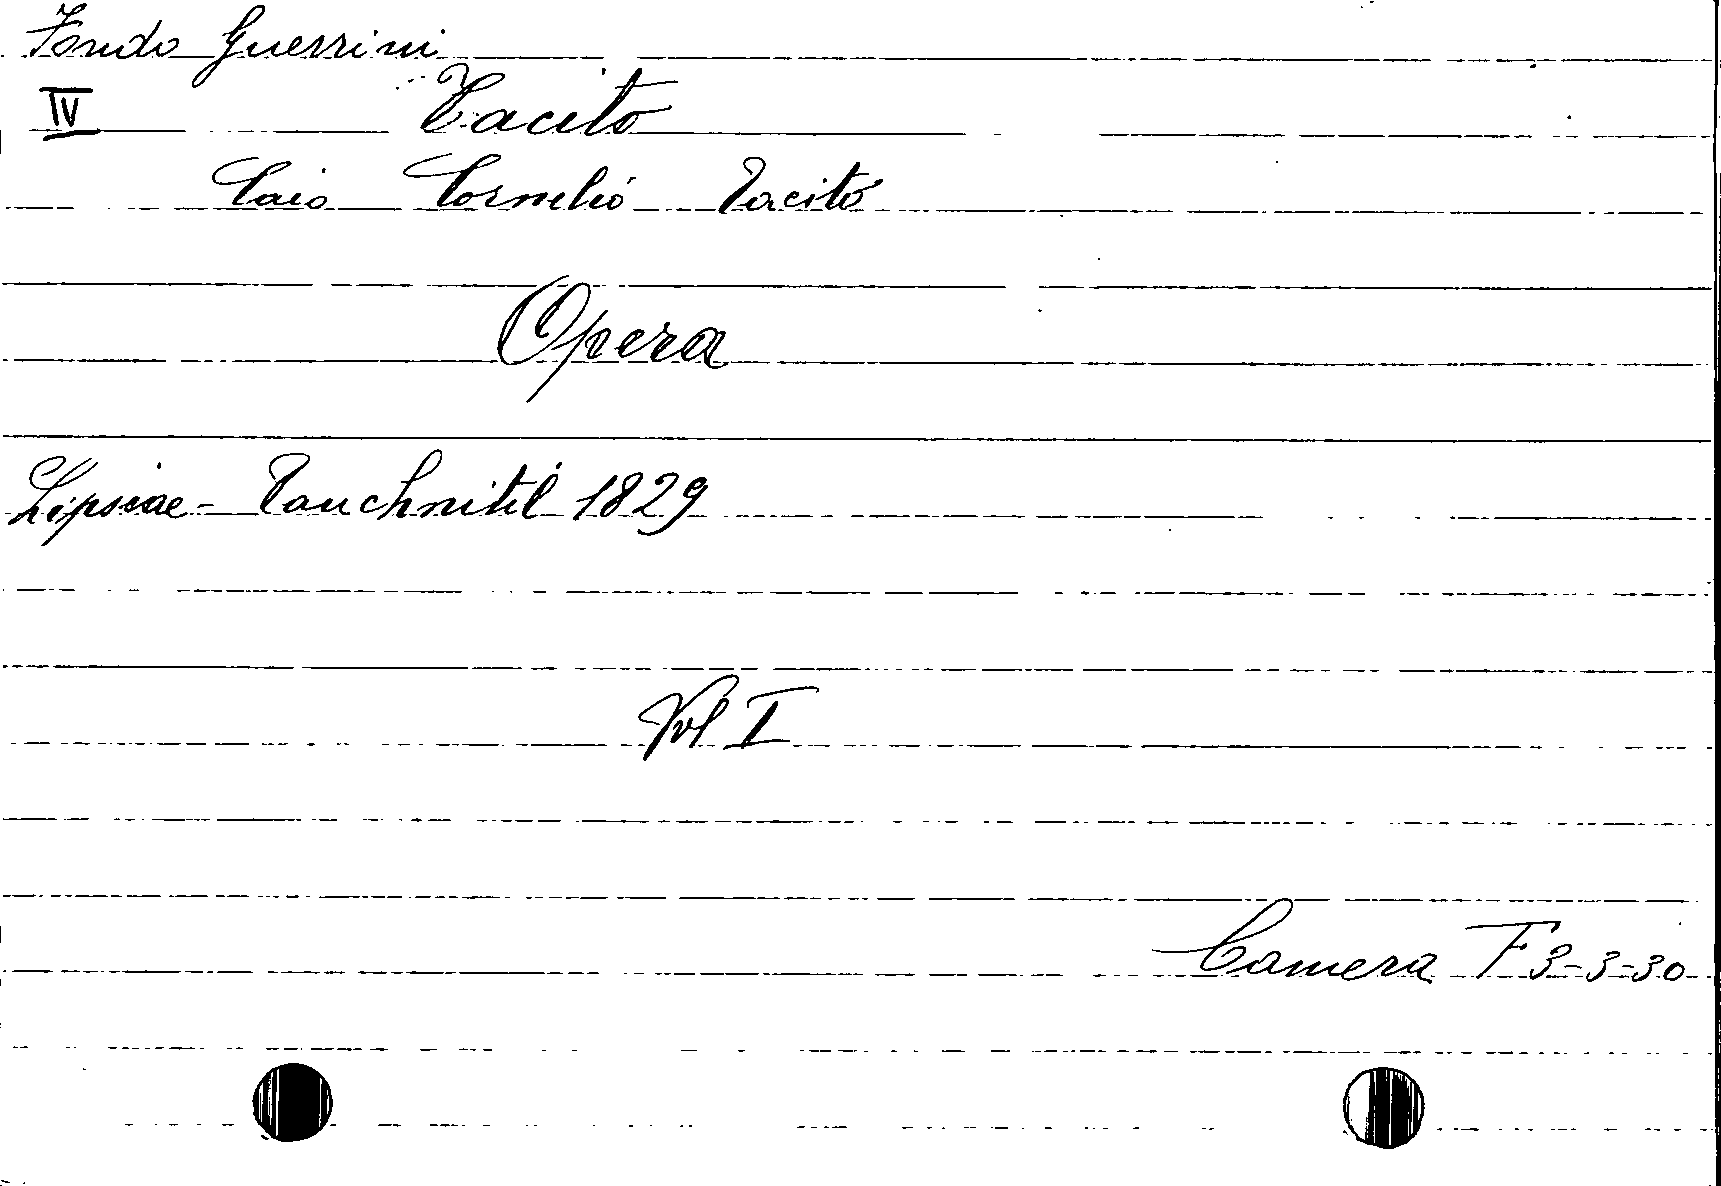 Fondo Guerrini
IV
Tacito
Caio Cornelio Tacito
Opera
Lipsiae - Tauchnitil 1829
Vol I
Camera F 3-3-30